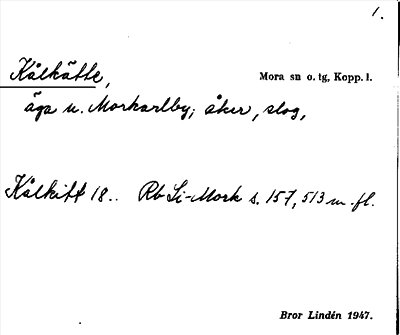 1.
Kålkätte,
Mora sn o. tg, Kopp. l.
äga u. Morkarlby; åker, slog,
Kålkitt 18.. Rb Li-Mork s. 157, 513 m. fl.
Bror Lindén 1947.